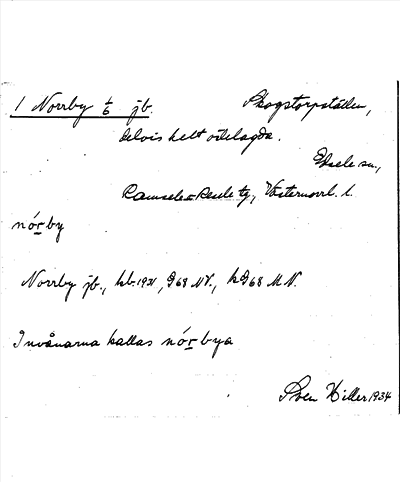 1 Norrby 1/6 jb. Skogstorpställen,
delvis helt ödelagda.
Edsele sn,
Ramsele o Resele tg, Västernorrl. l.
nórby
Norrby jb., kb. 1931, G 68 NV., h G 68 M.V.
Invånarna kallas nórbya
Sven Hiller 1934